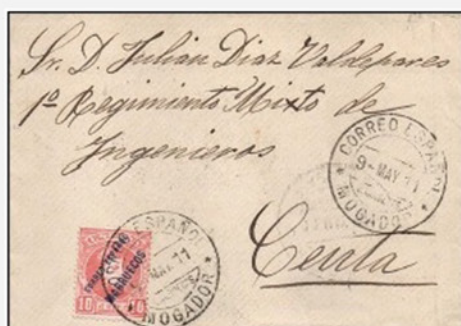 Sr. D. Julián Diaz Valdepares
1º Regimiento Mixto de
Ingenieros
CORREO ESPAÑOL
9-MAY 11
MOGADOR
Ceuta
ESPAÑOL
MAY 11
MOGADOR
MARRUECOS
10 10